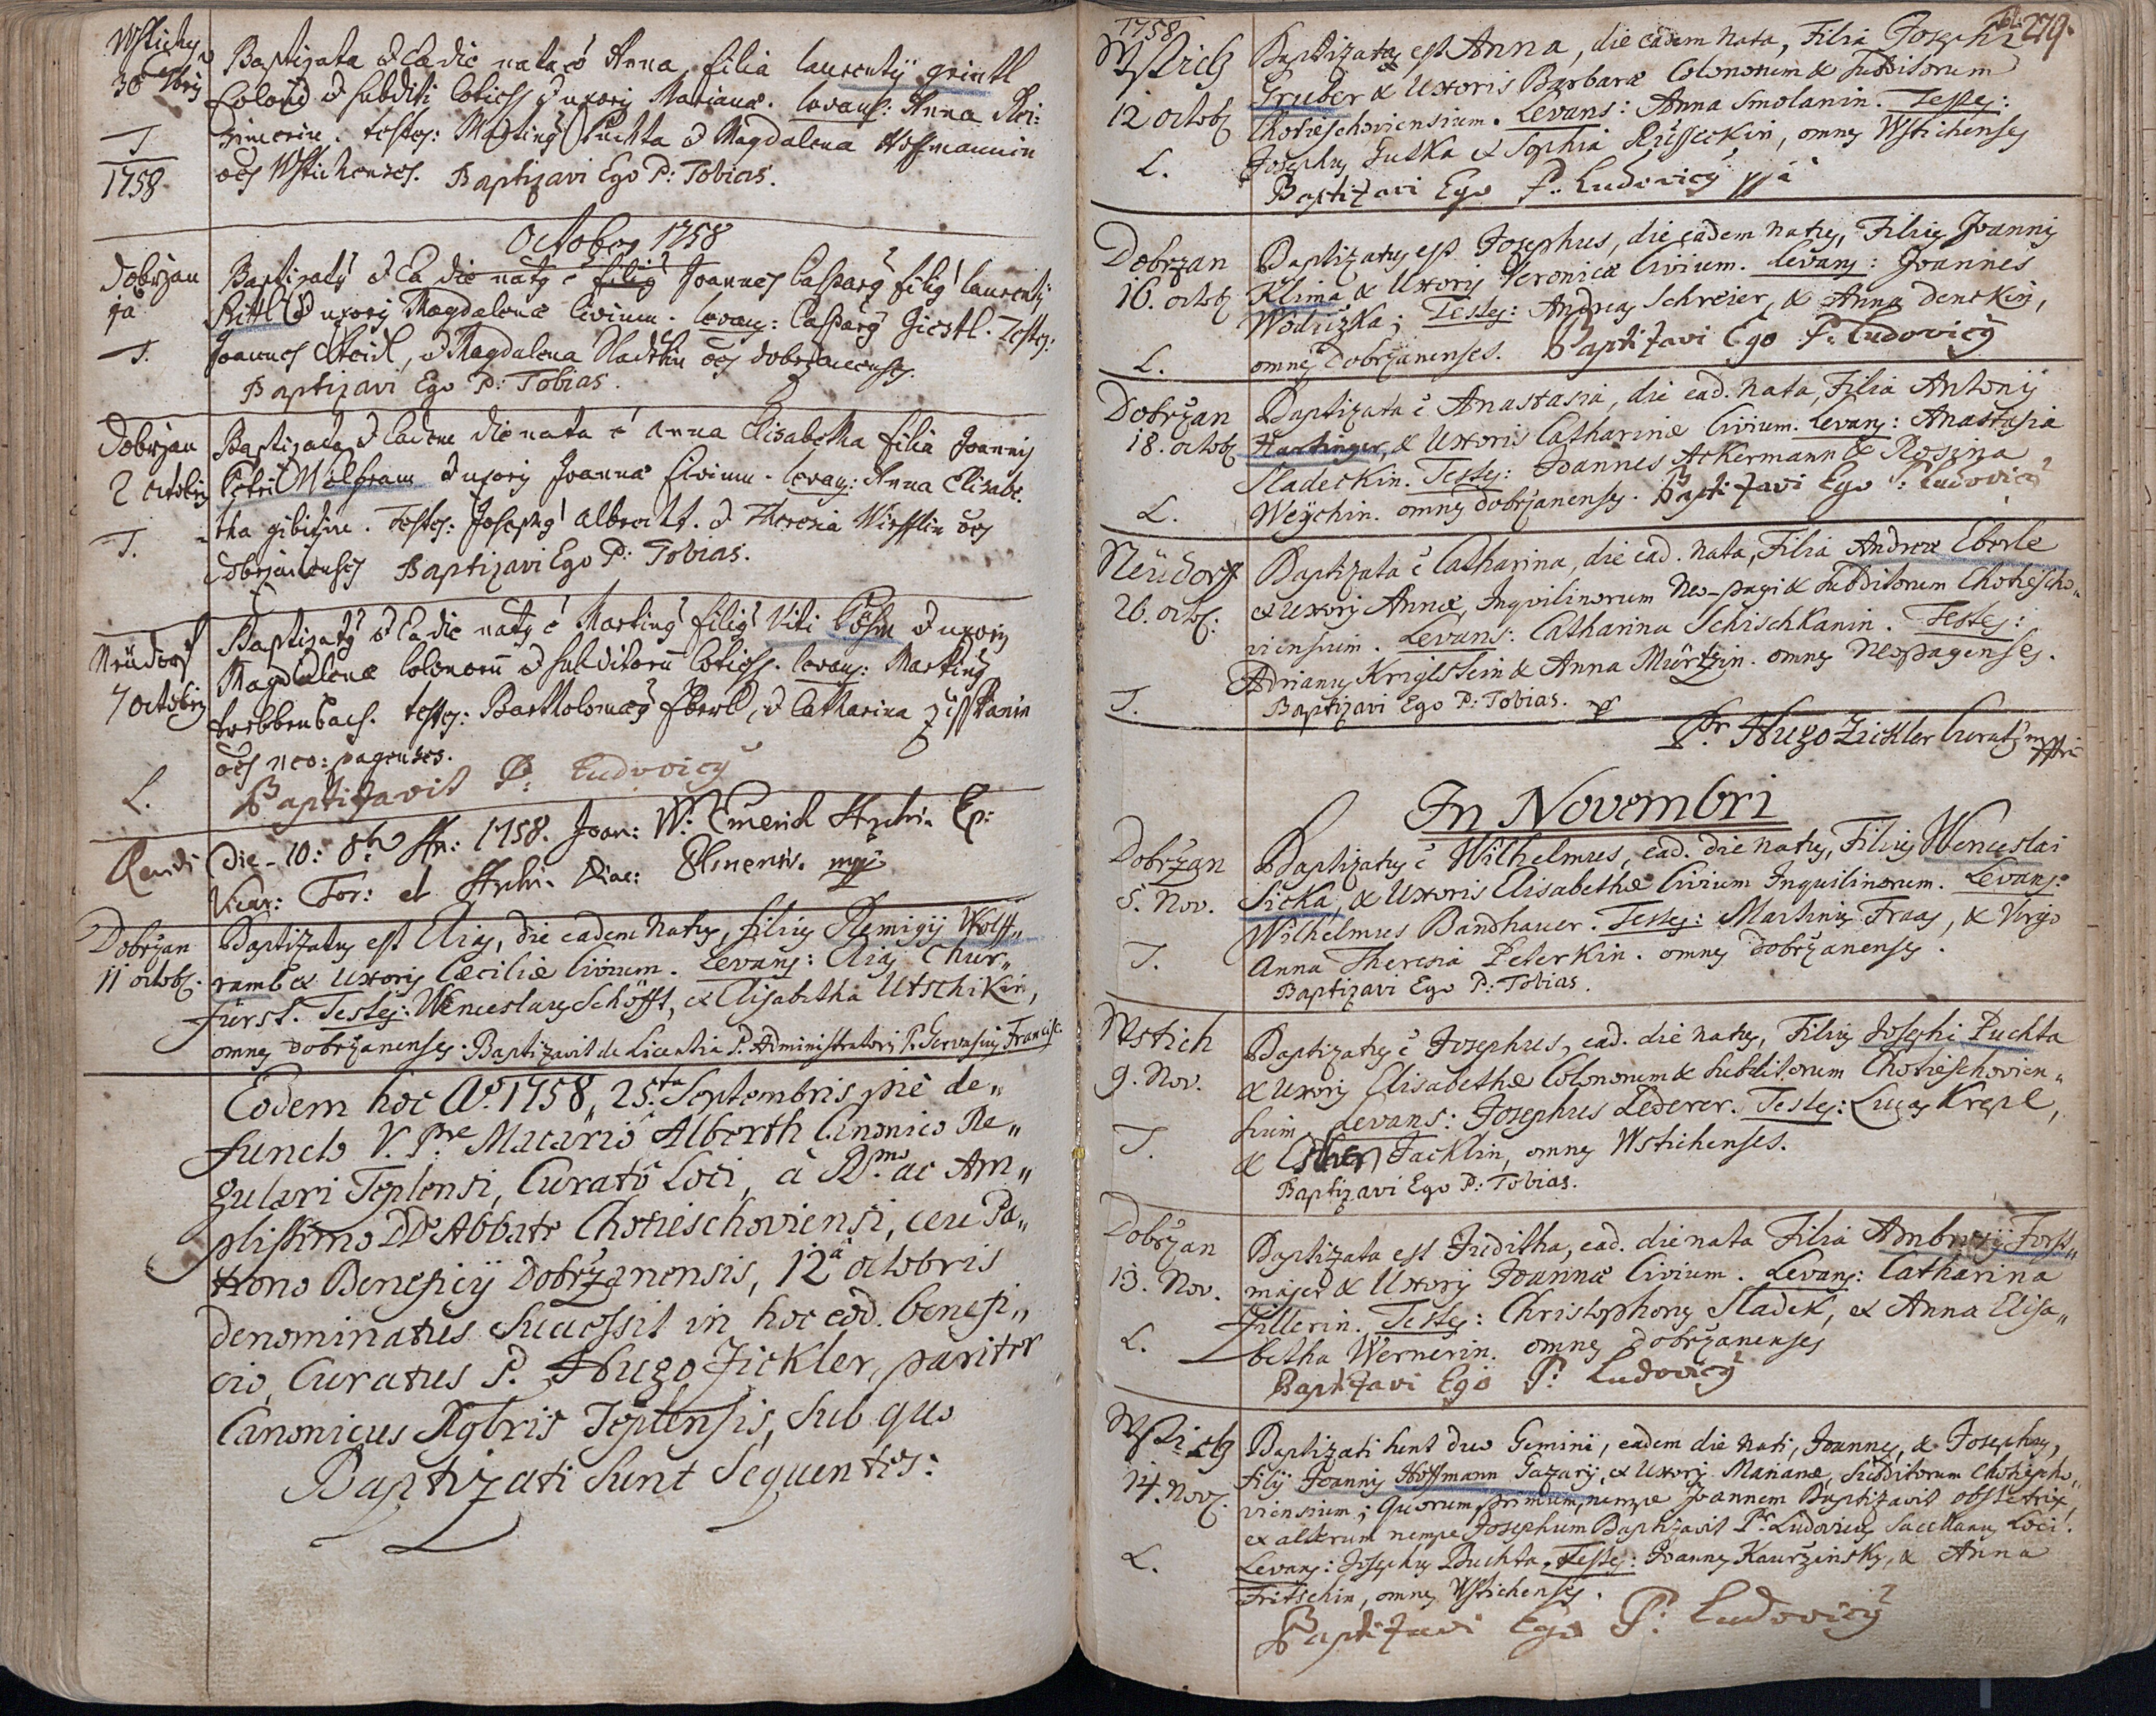 Wstich
30 7bris
Baptizata & Ea die nata é Anna filia laurentÿ grientl
Coloni & subditi Cotiess & uxoris Marianæ. levans: Anna
testes: Martinus Puchta & Magdalena Hoffmannin
T
1758
oes Wstichenses. Baptizavi Ego P: Tobias.
October 1758
Dobržan
1ja
Baptizatus & Ea die natus é Joannes Casparus filius laurentÿ
Rittl & uxoris Magdalenæ Civium. levans: Casparus Giestl. Testes:
T.
Joannes & Magdalena Sladekin oes dobržanenses.
Baptizavi Ego P: Tobias.
Dobržan
2 octobris
Baptizata & Eadem die nata é Anna Elisabetha filia Joannis
Petri Wolfram & uxoris Joannæ Civium. levans: Anna Elisabe:
T.
tha . Testes: Josephus Albrecht. & Theresia oes
dobržanenses Baptizavi Ego P: Tobias.
Neüdorf
7 octobris
Baptizatus & Ea die natus é Martinus filius Viti Böhm & uxoris
Magdalenæ Colonorum & subditorum Cotiess. levans: Martinus
testes: Bartholomæus Eberl, & Catharina
oes neo: pagenses.
L.
Baptizavit P: Ludovicus
Revidi Die 10: 8bris 1758. Joan: W: Emerich
Vicar: For: et
Dobržan
11 octob.
Baptizatus est Elias, die eadem natus, filius Remigÿ Wolff„
ramb & Uxoris Cæciliæ Civium. Levans: Elias Chur„
fürst. Testes: Wenceslaus Schöfft, & Elisabetha Utschikin,
omnes Dobržanenses. Baptizavit de Licentia P. Administratoris P. Gervasius Francisc.
Eodem hoc Ao. 1758, 25ta Septembris piè de„
functo V. Pre Macario Alberth Canonico Re„
gulari Teplensi, Curato Loci, à Rmo ac Am„
plissimo DD Abbate Chotieschoviensi, ceu Pa„
trono Beneficÿ Dobržanensis, 12a octobris
denominatus Successit in hoc eod. benefi„
cio, Curatus P. Hugo Zickler, pariter
Canonicus Rglris Teplensis, Sub quo
Baptizati Sunt Sequentes:
1758
279.
Wstich
12 octob
Baptizata est Anna, die eadem nata, Filia Josephi
Gruber & Uxoris Barbaræ Colonorum & Subditorum
Chotieschoviensium. Levans: Anna Smolanin. Testes:
L.
Josephus Gutka & Sophia Rüsseckin, omnes Wstichenses
Baptizavi Ego P. Ludovicus
Dobržan
16. octob
Baptizatus est Josephus, die eadem natus, Filius Joannis
Klima & Uxoris Veronicæ Civium. Levans: Joannes
Wodizka; Testes: Andreas Schreier, & Anna Denckin,
L.
omnes Dobržanenses. Baptizavi Ego P. Ludovicus
Dobržan
18. octob
Baptizata é Anastasia, die ead. nata, Filia Antonÿ
Hartinger, & Uxoris Catharinæ Civium. Levans: Anastasia
Sladeckin. Testes: Joannes Ackermann & Rosina
L.
Weÿchin. omnes dobržanenses. Baptizavi Ego P. Ludovicus
Neüdorf
26. octob:
Baptizata é Catharina, die ead. nata, Filia Andreæ Eberle
& Uxoris Annæ, Inquilinorum Neo-pagi & Subditorum Chotiescho„
viensium. Levans: Catharina Schischkanin. Testes:
Adrianus Kriglstein & Anna Mürtzin. omnes Neopagenses.
T.
Baptizavi Ego P: Tobias.
Pr. Hugo Zickler Curatus mppria
In Novembri
Dobržan
5. Nov.
Baptizatus é Wilhelmus, ead. die natus, Filius Wenceslai
Sicka, & Uxoris Elisabethæ Civium Inquilinorum. Levans:
Wilhelmus Bandhauer. Testes: Martinus Fraas, & Virgo
T.
Anna Theresia Peterkin. omnes Dobržanenses.
Baptizavi Ego P: Tobias.
Wstich
9. Nov.
Baptizatus é Josephus, ead. die natus, Filius Josephi Puchta
& Uxoris Elisabethæ Colonorum & Subditorum Chotieschovien„
sium. Levans: Josephus Lederer. Testes: Lucas Krepl,
T.
& Esther Jacklin, omnes Wstichenses.
Baptizavi Ego P: Tobias.
Dobržan
13. Nov.
Baptizata est Juditha, ead. die nata Filia Ambrosÿ Forst„
majer & Uxoris Joannæ Civium. Levans: Catharina
Fillerin. Testes: Christophorus Sladek, & Anna Elisa„
L.
betha Wernerin. omnes Dobržanenses
Baptizavi Ego P: Ludovicus
Wstich
14. Nov.
Baptizati sunt duo Gemini, eadem die nati, Joannes, & Josephus,
Filÿ Joannis Hoffmann Gazarÿ, & Uxoris Marianæ, Subditorum Chotiescho„
viensium; Quorum primum, nempe Joannem Baptizavit obstetrix,
& alterum nempe Josephum Baptizavit Pr. Ludovicus Sacellanus Loci.
L.
Levans: Josephus Puchta. Testes: Joannes Kauržinsky, & Anna
Fritschin, omnes Wstichenses.
Baptizavi Ego P: Ludovicus